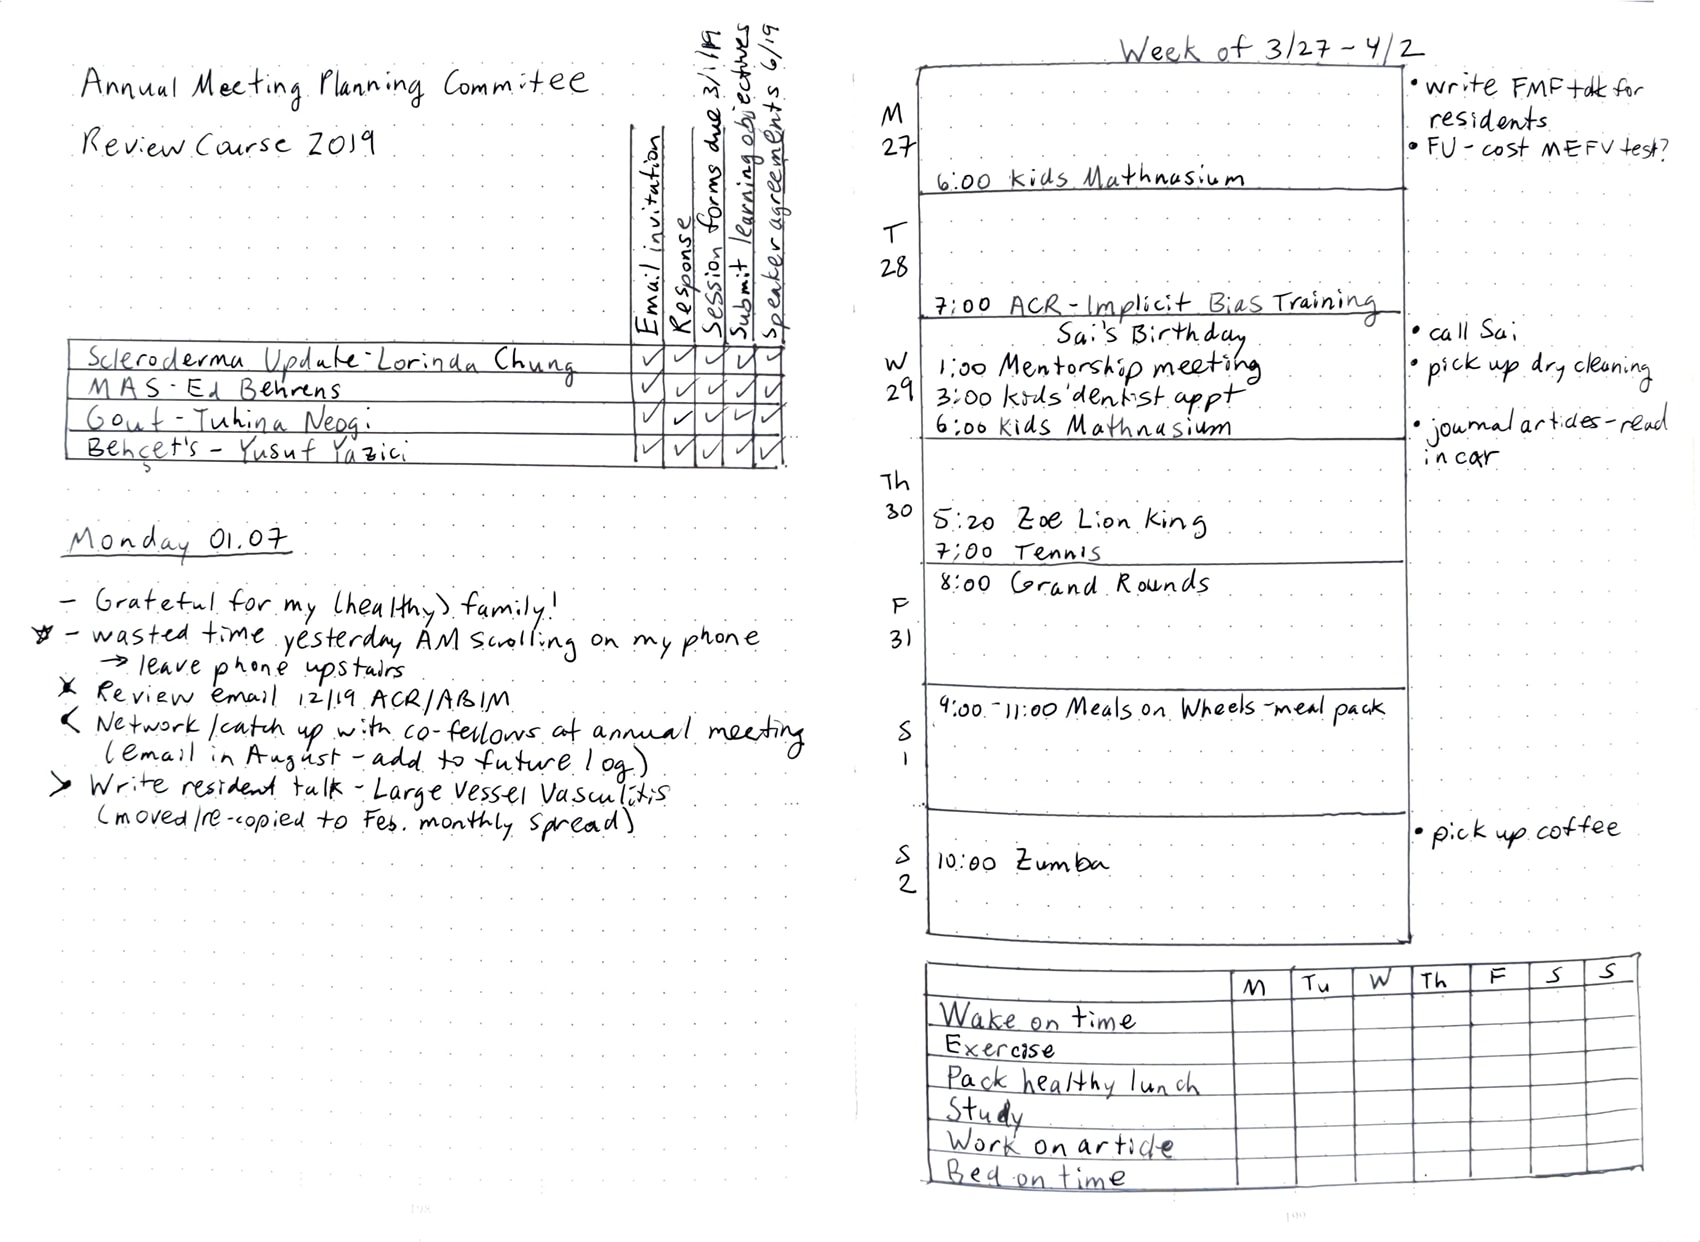 Annual Meeting Planning Commitee
Review Course 2019
Email invitation
Response
Session forms due 3/1/19
Submit learning objectives
Speaker agreements 6/19
Scleroderma Update - Lorinda Chung ✓ ✓ ✓ ✓ ✓
MAS - Ed Behrens ✓ ✓ ✓ ✓ ✓
Gout - Tuhina Neogi ✓ ✓ ✓ ✓ ✓
Behçet's - Yusuf Yazici ✓ ✓ ✓ ✓ ✓
Monday 01.07
- Grateful for my (healthy) family!
- wasted time yesterday AM scrolling on my phone
→ leave phone upstairs
x Review email 12/19 ACR/ABIM
< Network/catch up with co-fellows at annual meeting
(email in August - add to future log)
> Write resident talk - Large Vessel Vasculitis
(moved/re-copied to Feb. monthly spread)
198
Week of 3/27 - 4/2
M
27
6:00 Kids Mathnasium
• write FMF talk for
residents
• FU - cost MEFV test?
T
28
7:00 ACR - Implicit Bias Training
W
29
Sai's Birthday
1:00 Mentorship meeting
3:00 kids' dentist appt
6:00 Kids Mathnasium
• call Sai
• pick up dry cleaning
• journal articles - read
in car
Th
30
5:20 Zoe Lion King
7:00 Tennis
F
31
8:00 Grand Rounds
S
1
9:00 - 11:00 Meals on Wheels - meal pack
S
2
10:00 Zumba
• pick up coffee
M Tu W Th F S S
Wake on time
Exercise
Pack healthy lunch
Study
Work on article
Bed on time
199